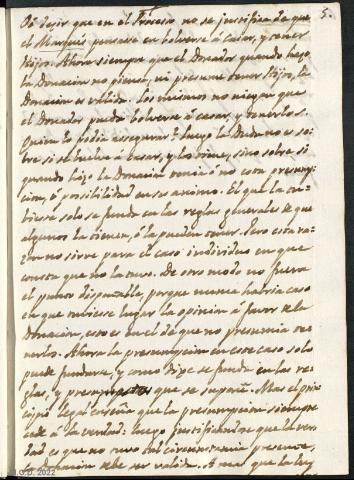 5.
Oí dezir que en el Processo no se justifica de que
el Marqués pensase en bolverse á casar, y tener
hijos. Ahora siempre que el Donador quando hizo
la Donacion no piensa, ni presume tener hijos, la
Donacion es valida. Los mismos no niegan que
el Donador pueda bolverse á casar, y tenerlos.
Quien lo podia assegurar? luego la Duda no es so-
bre si se buelve á casar, y los tiene, sino sobre si
quando hizo la Donacion tenia ó no esta presump-
cion, ó possibilidad en su animo. El que la tu-
biesse solo se funda en las reglas generales de que
algunos la tienen, ó la pueden tener. Pero esta ra-
zon no sirve para el caso individuo en que
consta que no la tuvo. De otro modo no fuera
el punto disputable, porque nunca habria caso
en que tubiesse lugar la opinion á favor de la
Donacion, esto es en el de que no presumia te-
nerlos. Ahora la presumpcion en este caso solo
puede fundarse, y como dize se funda en las re-
glas, y presupuestos que se suponen. Mas el prin-
cipio legal enseña que la presumpcion siempre
cede á la verdad: luego justificandose que la ver-
dad es que no tuvo tal circunstancia presente,
la Donacion debe ser valida. A mas que la ley
I.G.D. 2022